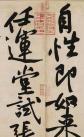 自性即如書
任運堂試張